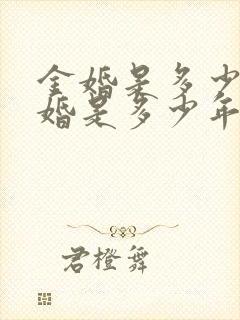 金婚是多少
婚是多少年
君橙舞